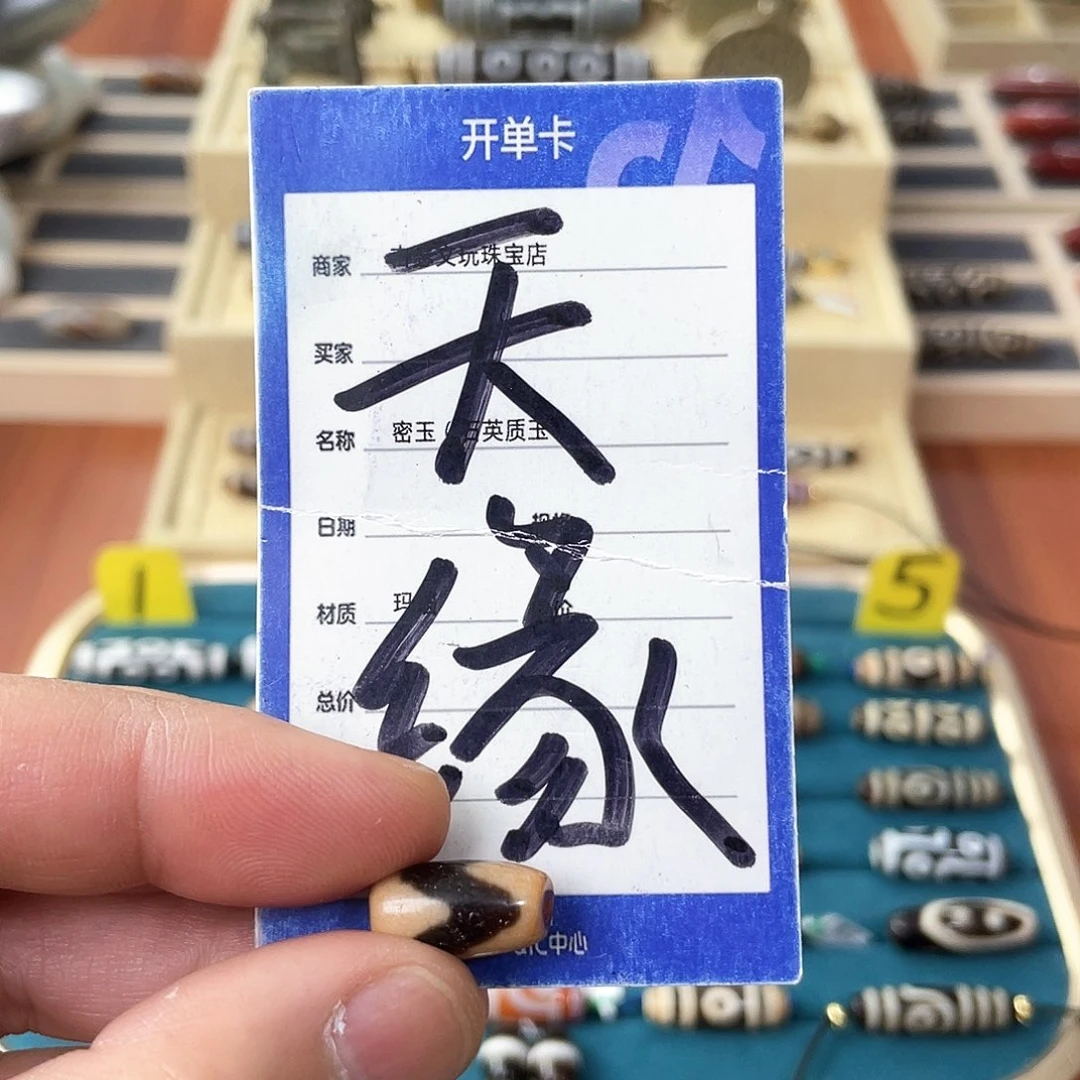 开单卡
商家 文玩珠宝店
买家
名称 密玉 英质玉
日期
材质 玛
总价
天
缘
中心
1
5